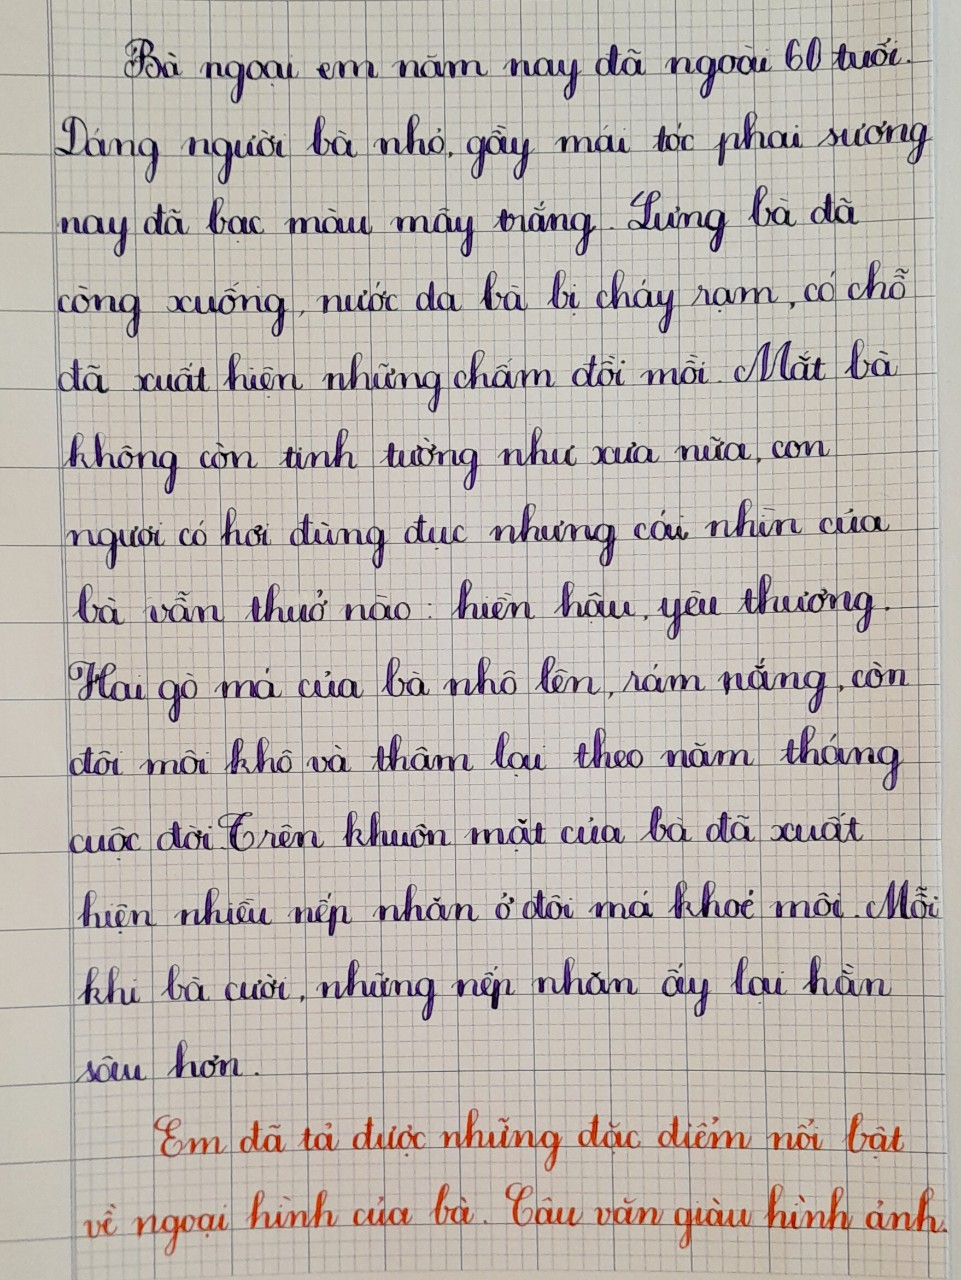 Bà ngoại em năm nay đã ngoài 60 tuổi.
Dáng người bà nhỏ, gầy mái tóc phai sương
nay đã bạc màu mây trắng. Lưng bà đã
còng xuống, nước da bà bị cháy rạm, có chỗ
đã xuất hiện những chấm đồi mồi. Mắt bà
không còn tinh tường như xưa nữa, con
ngươi có hơi đùng đục nhưng cái nhìn của
bà vẫn thuở nào: hiền hậu, yêu thương.
Hai gò má của bà nhô lên, rám nắng, còn
đôi môi khô và thâm lại theo năm tháng
cuộc đời Trên khuôn mặt của bà đã xuất
hiện nhiều nếp nhăn ở đôi má khoé môi. Mỗi
khi bà cười, những nếp nhăn ấy lại hằn
sâu hơn.
Em đã tả được những đặc điểm nổi bật
về ngoại hình của bà. Câu văn giàu hình ảnh.